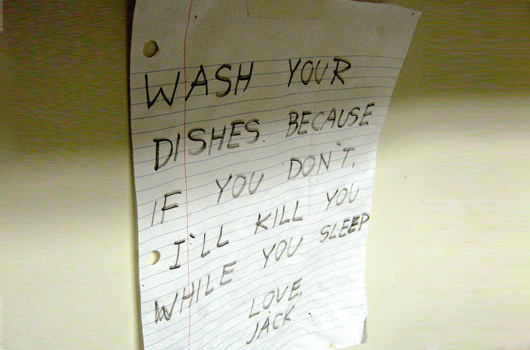 WASH YOUR
DISHES. BECAUSE
IF YOU DON'T,
I'LL KILL YOU
WHILE YOU SLEEP
LOVE,
JACK